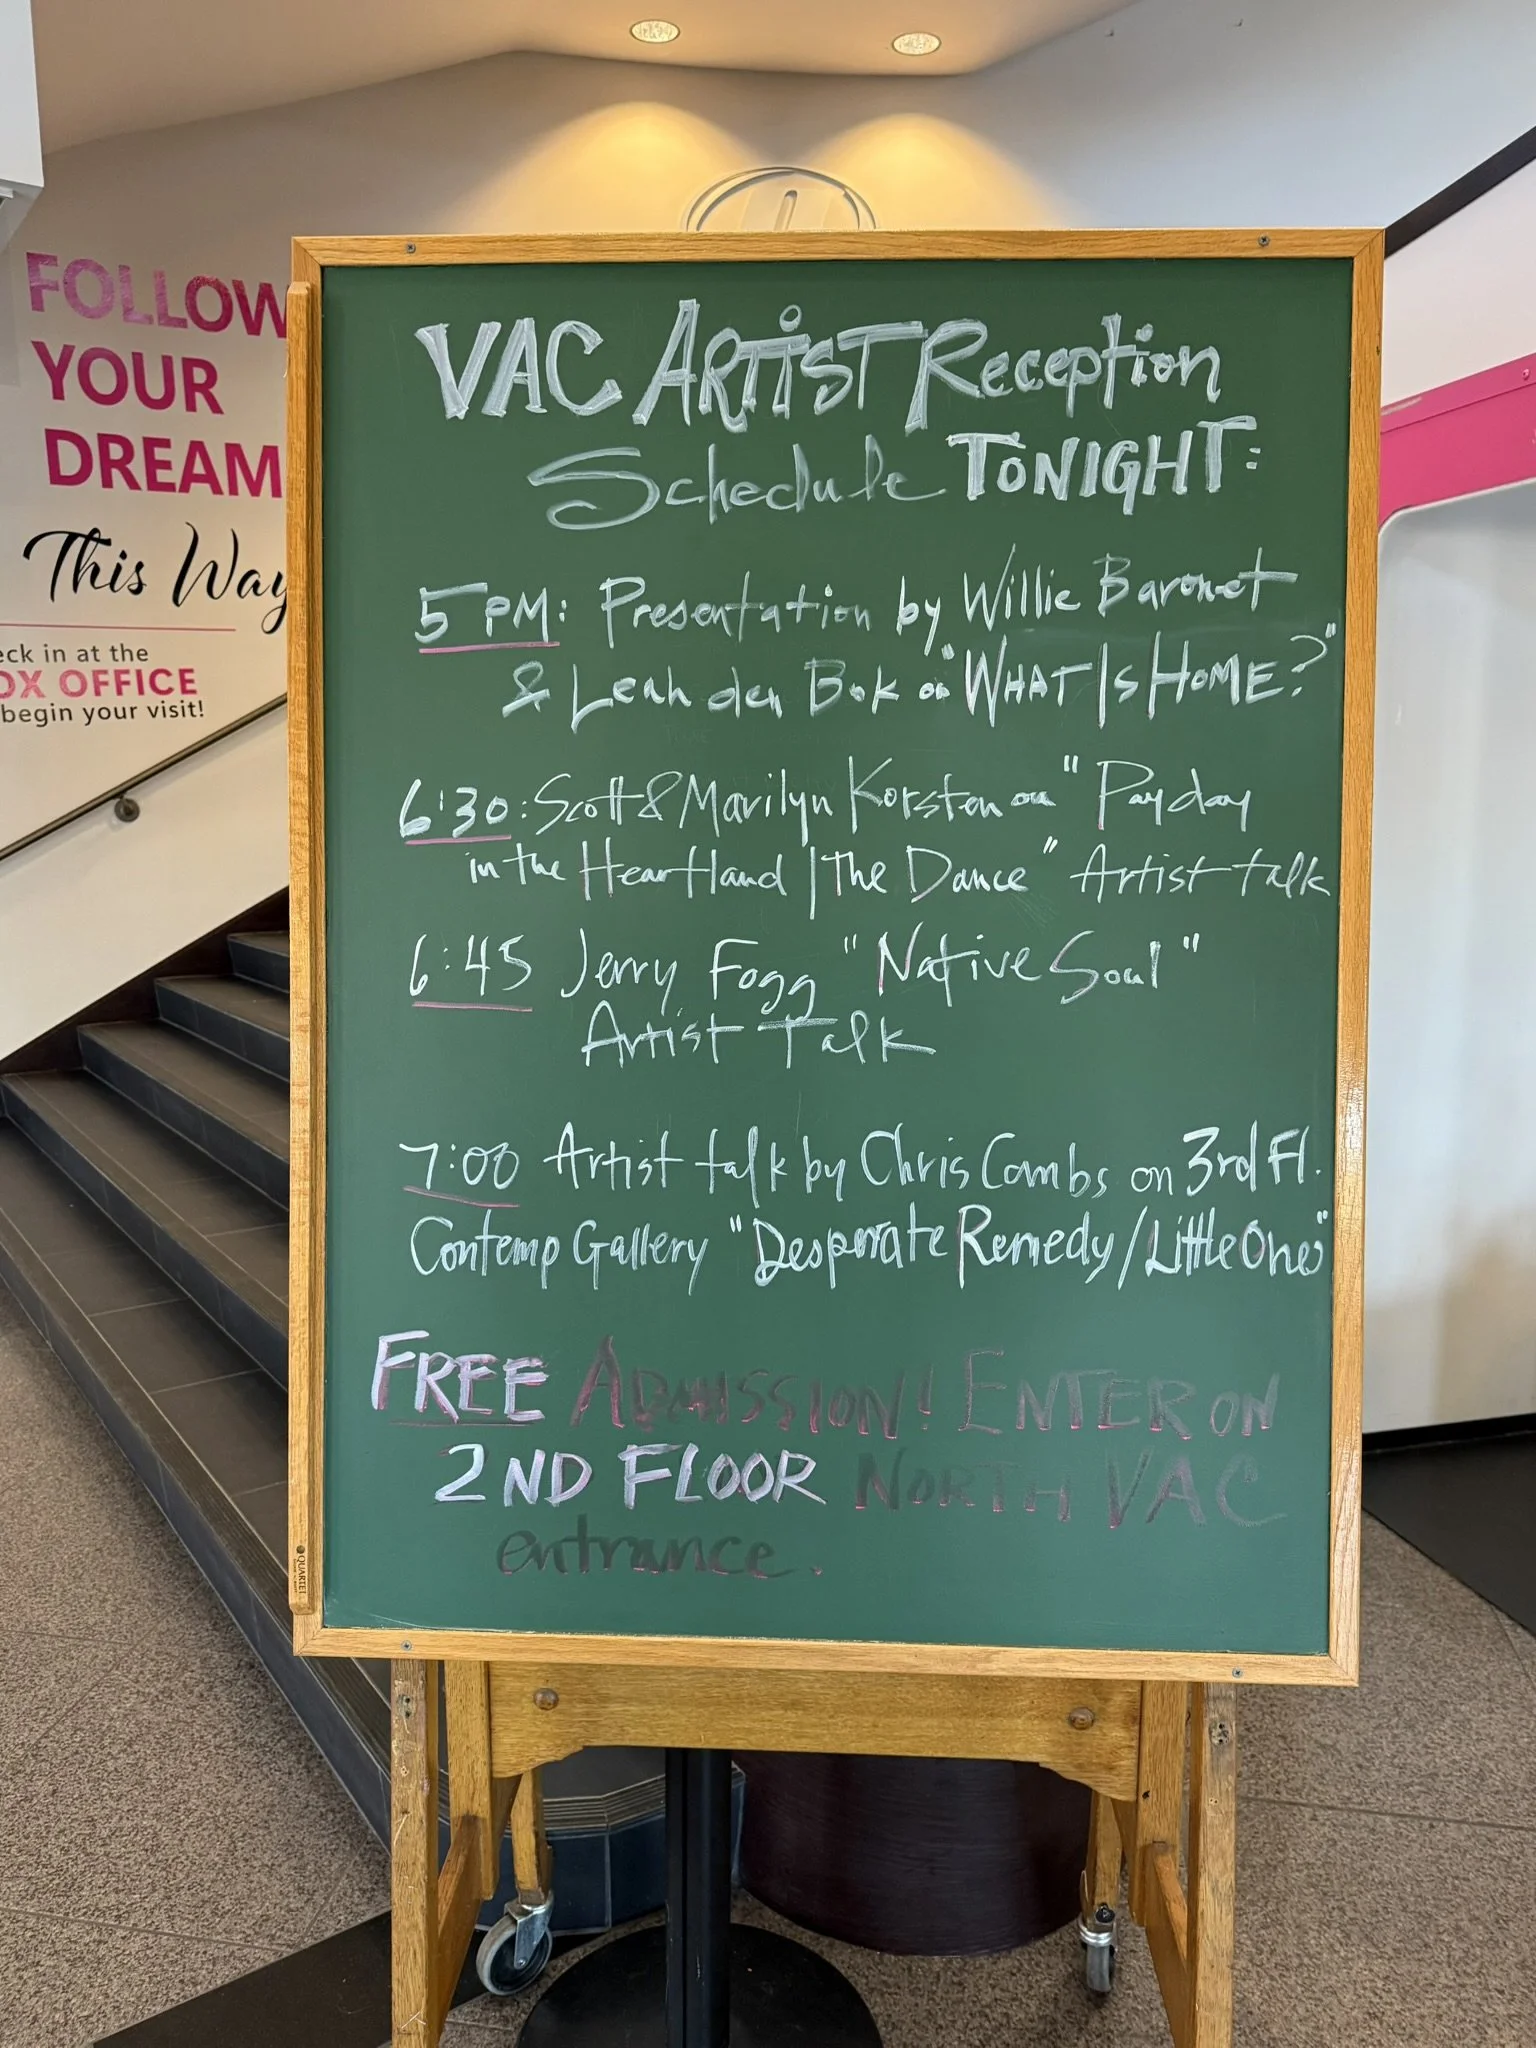 FOLLOW
YOUR
DREAM
This Way
eck in at the
OX OFFICE
begin your visit!
VAC ARTiST Reception
Schedule TONIGHT:
5 PM: Presentation by Willie Baronet
& Leah den Bok on "WHAT IS HOME?"
6:30: Scott & Marilyn Korsten on "Payday
in the Heartland | The Dance" Artist talk
6:45 Jerry Fogg "Native Soul"
Artist Talk
7:00 Artist talk by Chris Combs on 3rd Fl.
Contemp Gallery "Desperate Remedy/Little Ones"
FREE ADMISSION! ENTER ON
2ND FLOOR NORTH VAC
entrance.
QUARTET